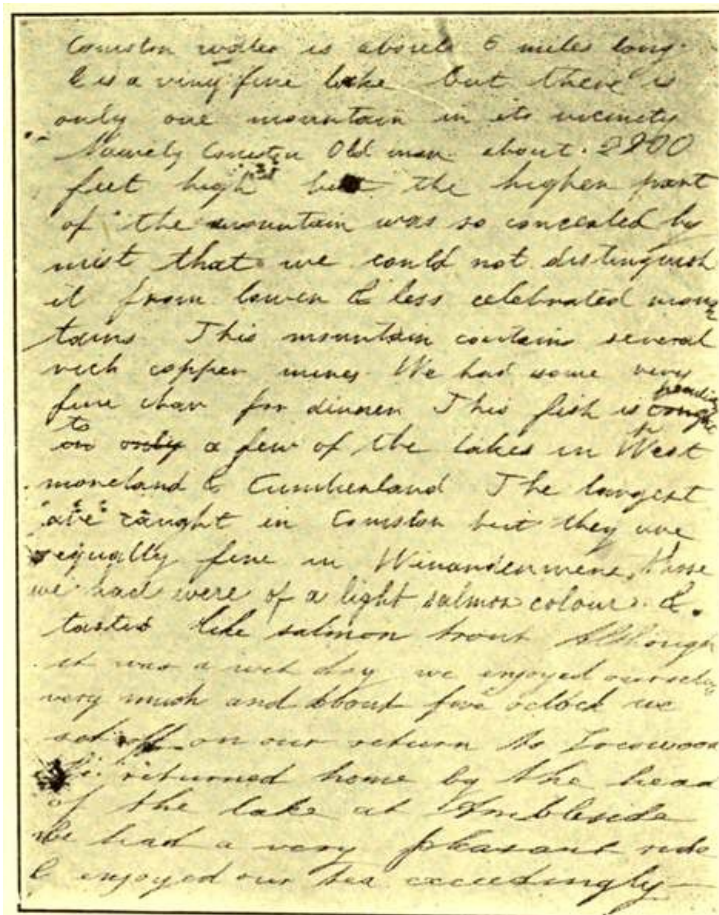 Coniston water is about 6 miles long.
& is a very fine lake but there is
only one mountain in its vicinity
Namely Coniston Old man about 2700
feet high but the higher part
of the mountain was so concealed by
mist that we could not distinguish
it from lower & less celebrated moun
tains This mountain contains several
rich copper mines We had some very
fine char for dinner This fish is peculiar
to a few of the lakes in West
moreland & Cumberland The largest
are caught in Coniston but they are
equally fine in Winandermere, those
we had were of a light salmon colour &
tasted like salmon trout Although
it was a wet day we enjoyed ourselves
very much and about five oclock we
set off on our return to Lowwood
We returned home by the head
of the lake at Ambleside
We had a very pleasant ride
& enjoyed our tea exceedingly—